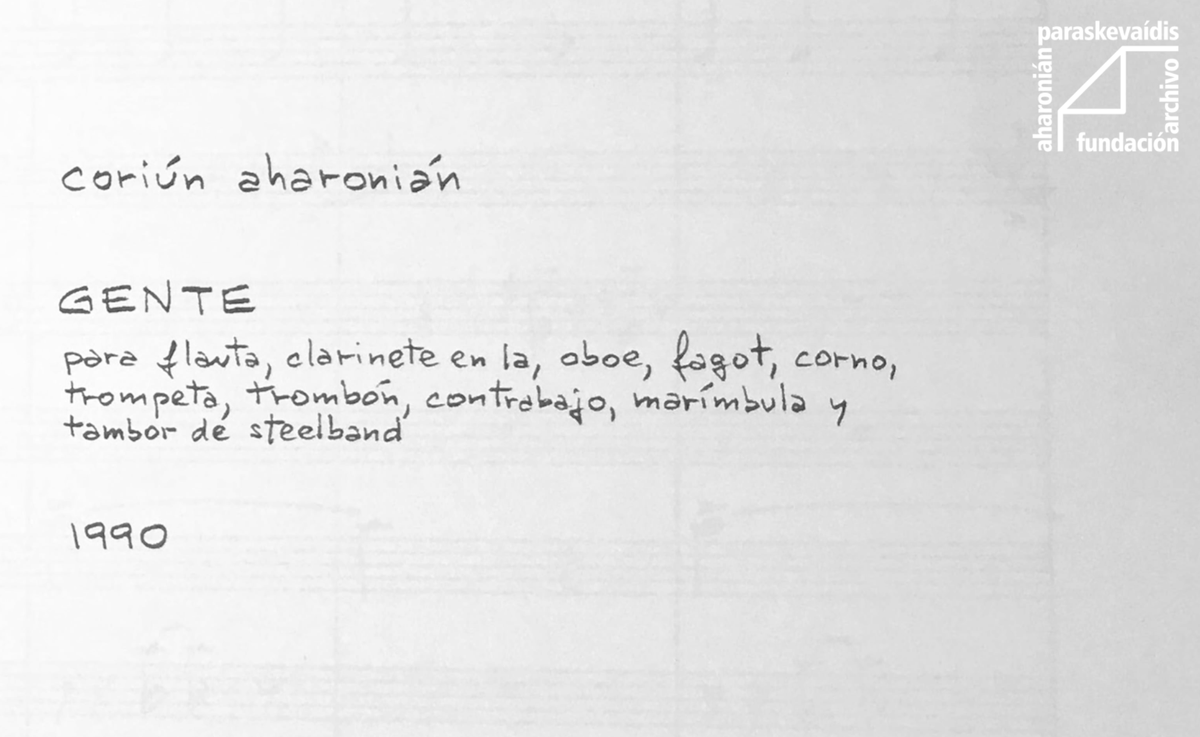 paraskevaídis
aharonián
archivo
fundación
coriún aharonián
GENTE
para flauta, clarinete en la, oboe, fagot, corno,
trompeta, trombón, contrabajo, marímbula y
tambor de steelband
1990